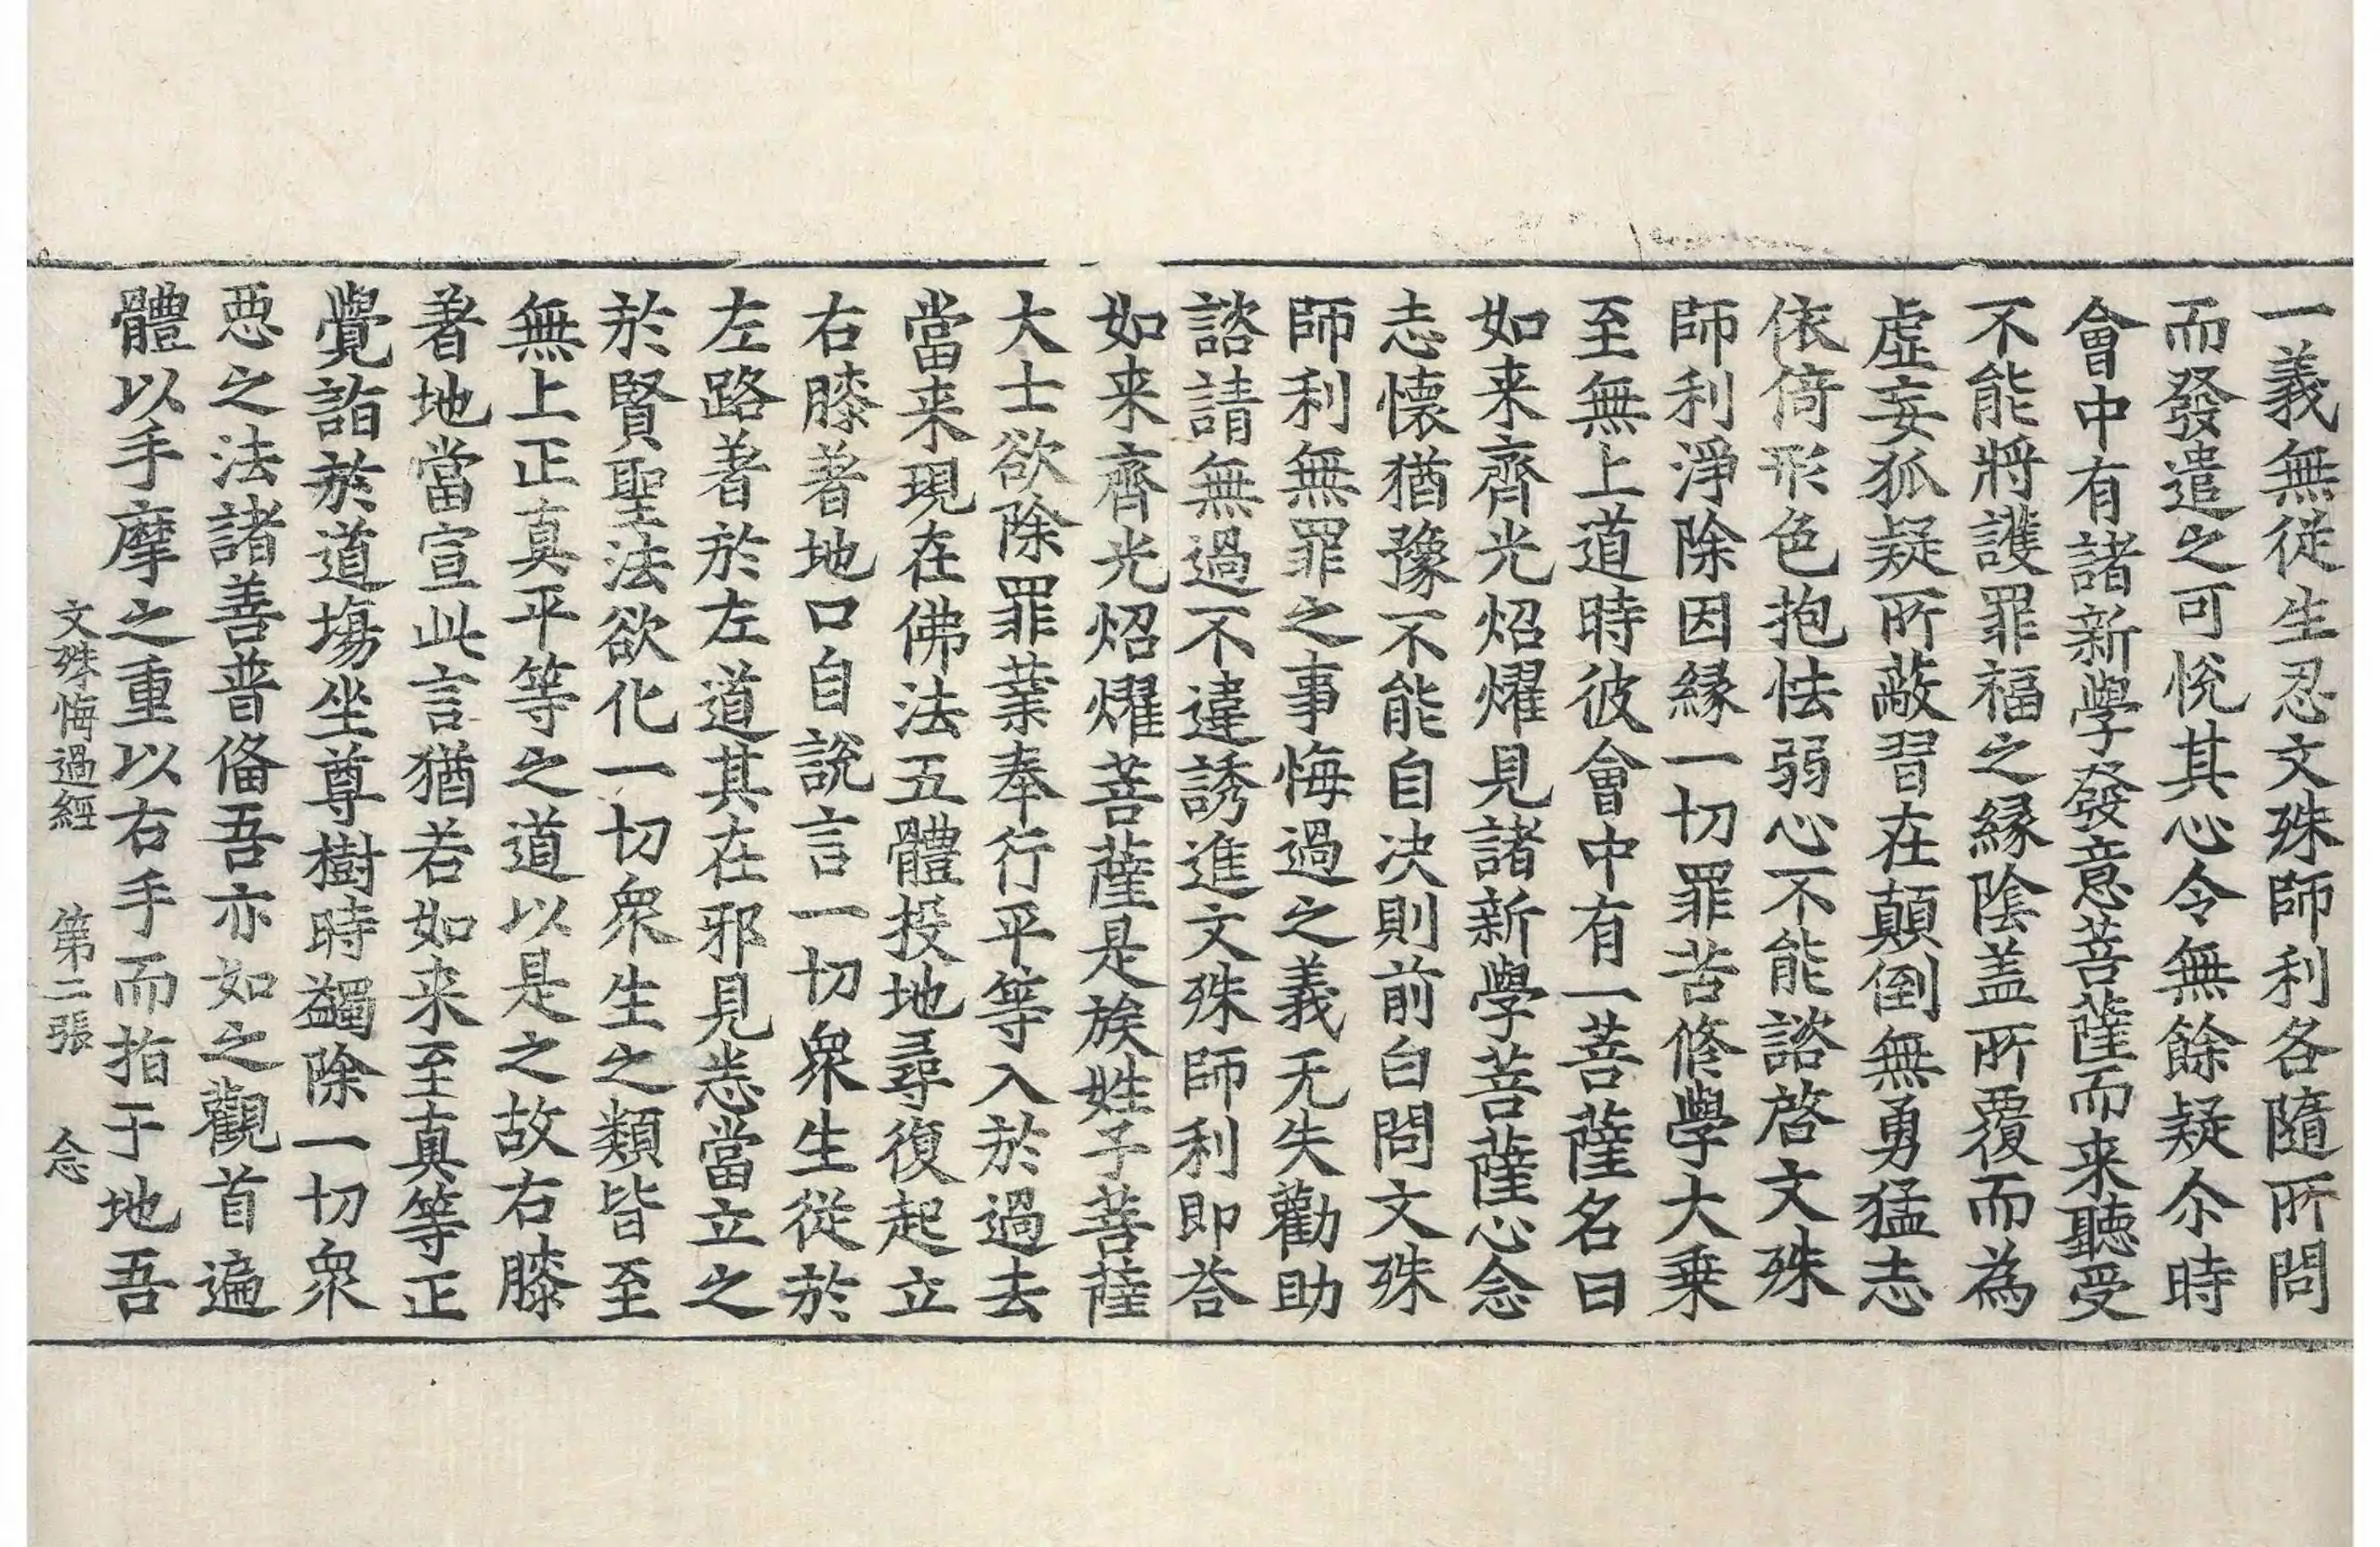 一義無從生忍文殊師利各隨所問
而發遣之可悅其心令無餘疑尒時
會中有諸新學發意菩薩而来聽受
不能將護罪福之緣陰盖所覆而為
虛妄狐疑所蔽習在顛倒無勇猛志
依倚形色抱怯弱心不能諮啓文殊
師利淨除因緣一切罪苦修學大乗
至無上道時彼會中有一菩薩名曰
如来齊光炤燿見諸新學菩薩心念
志懷猶豫不能自决則前白問文殊
師利無罪之事悔過之義无失勸助
諮請無過不違誘進文殊師利即荅
如来齊光炤燿菩薩是族姓子菩薩
大士欲除罪業奉行平等入於過去
當来現在佛法五體投地尋復起立
右膝著地口自說言一切衆生從於
左路著於左道其在邪見恙當立之
於賢聖法欲化一切衆生之類皆至
無上正真平等之道以是之故右膝
著地當宣此言猶若如来至真等正
覺詣於道塲坐尊樹時蠲除一切衆
惡之法諸善普俻吾亦如之觀首遍
體以手摩之重以右手而指于地吾
文殊悔過經 第二張 念